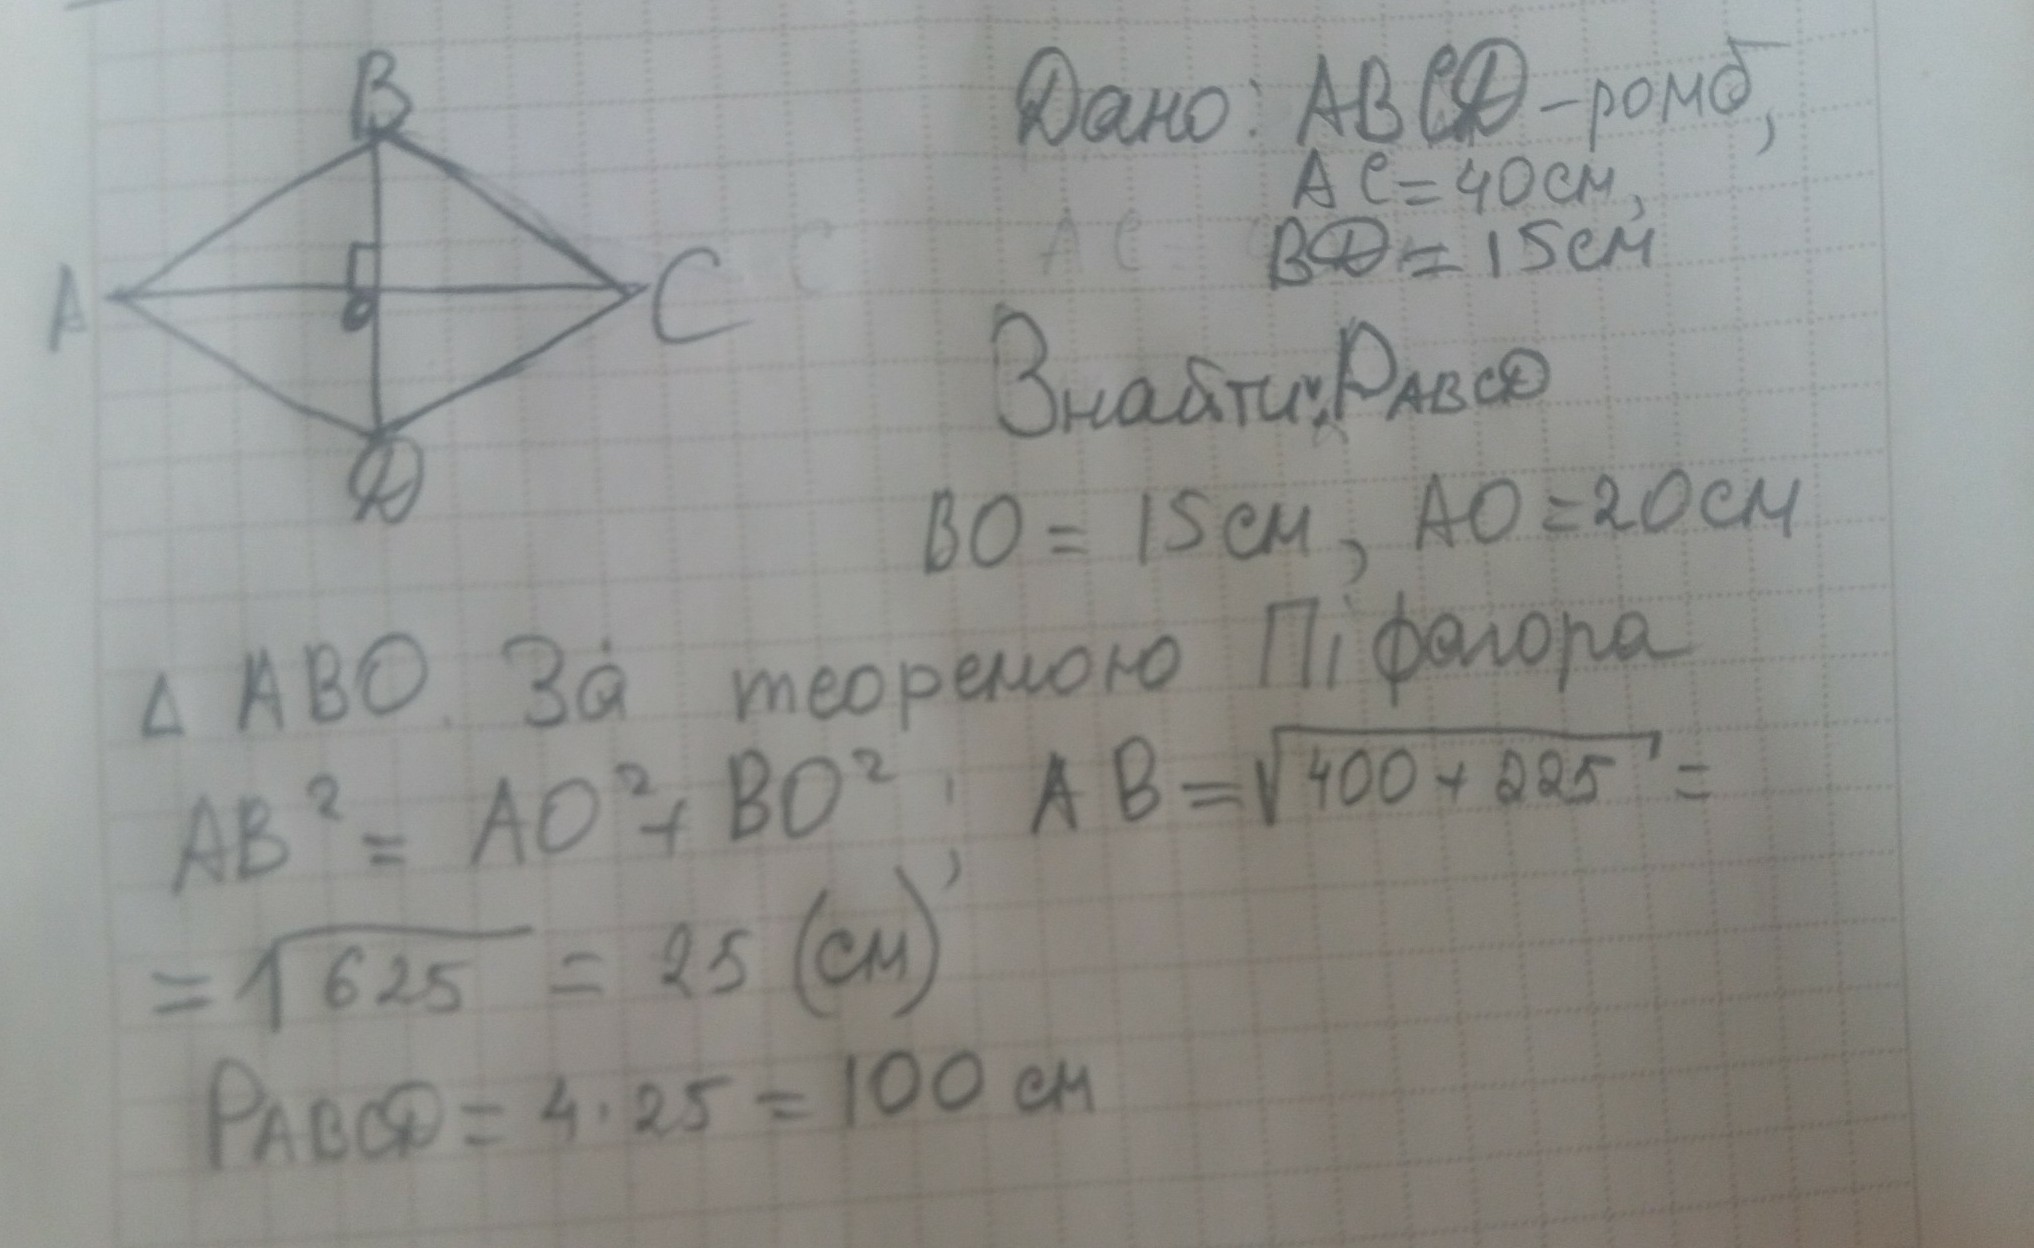 B
A
C
D
O
Дано: ABCD - ромб,
AC = 40 см,
BD = 15 см
Знайти: P ABCD
BO = 15 см, AO = 20 см
Δ ABO. За теоремою Піфагора
AB² = AO² + BO², AB = √400 + 225 =
= √625 = 25 (см)
P ABCD = 4 · 25 = 100 см